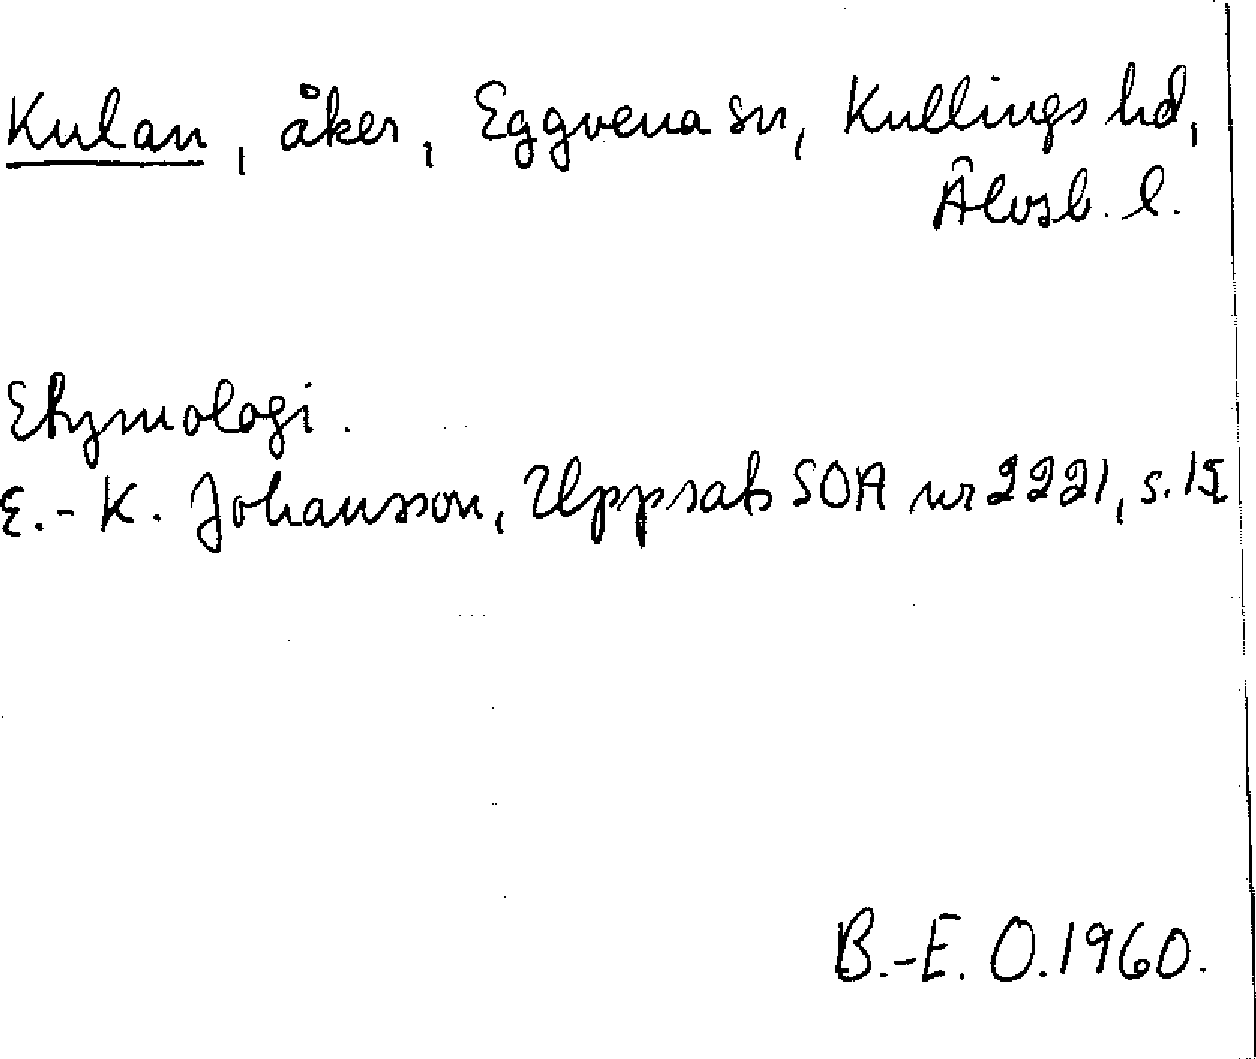 Kulan, åker, Eggvena sn, Kullings hd,
Älvsb. l.
Etymologi.
E.-K. Johansson, Uppsats SOA nr 2221, s. 15
B.-E. O. 1960.